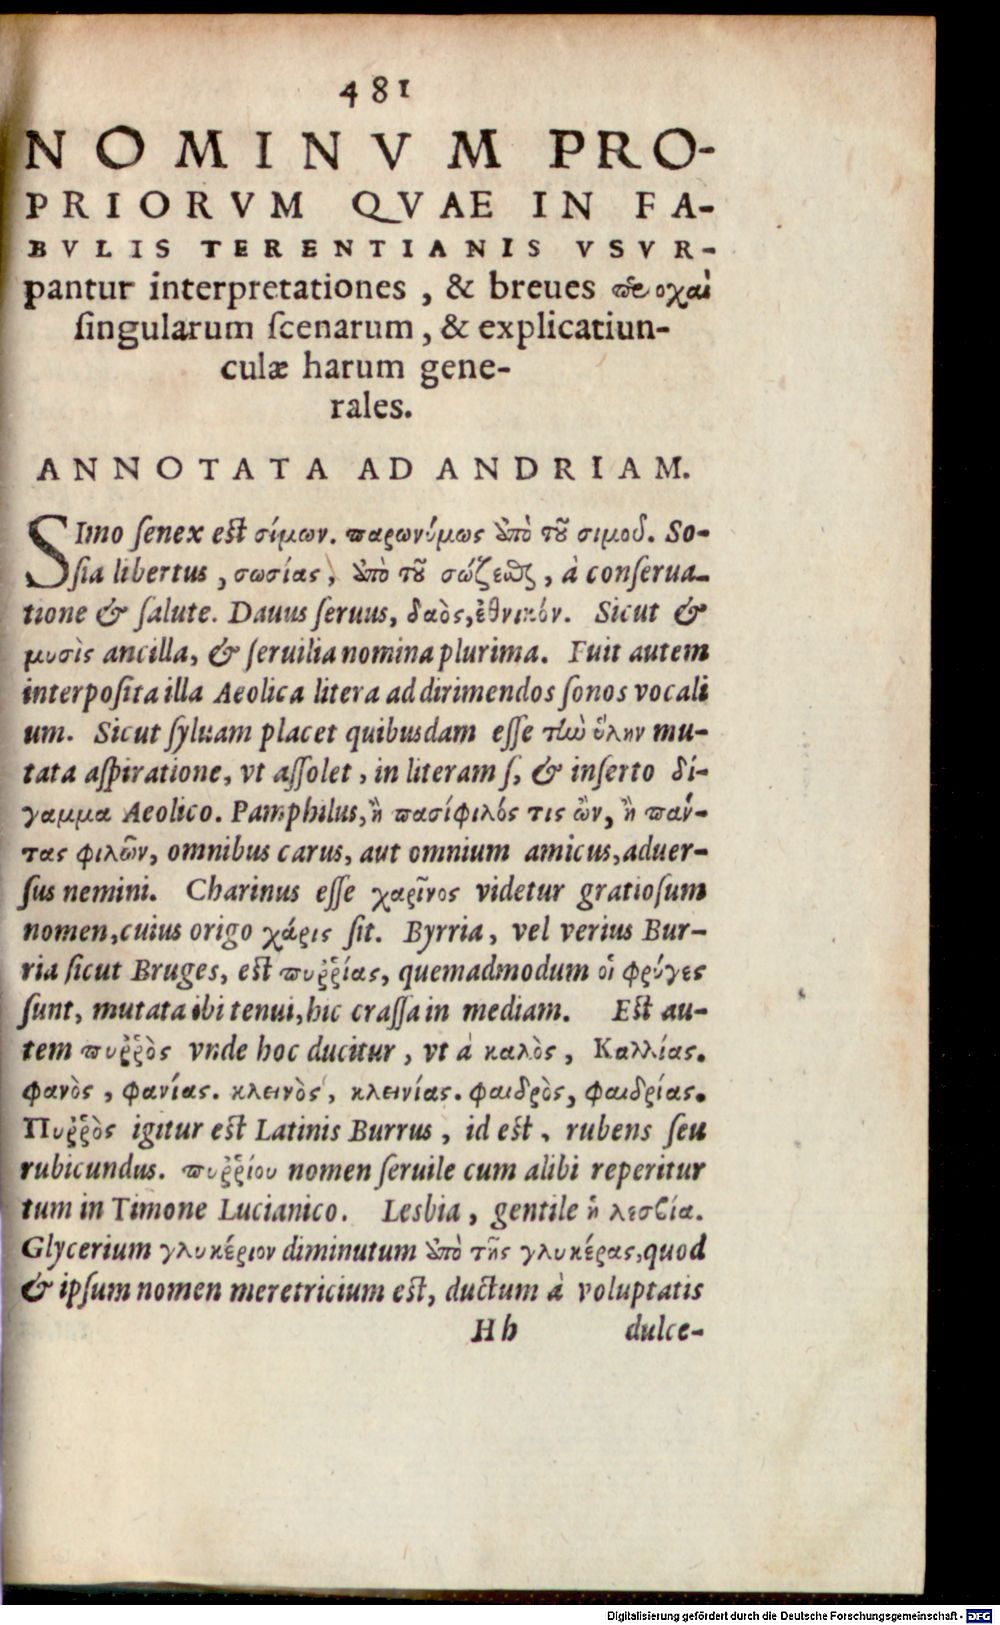 481
NOMINVM PRO-
PRIORVM QVAE IN FA-
BVLIS TERENTIANIS VSVR-
pantur interpretationes, & breues περιοχαὶ
ſingularum ſcenarum, & explicatiun-
culæ harum gene-
rales.
ANNOTATA AD ANDRIAM.
SImo ſenex eſt σίμων. παρωνύμως ἀπὸ τοῦ σιμοῦ. So-
ſia libertus, σωσίας, ἀπὸ τοῦ σώζεσθαι, à conſerua-
tione & ſalute. Dauus ſeruus, δαὸς, ἐθνικόν. Sicut &
μυσὶς ancilla, & ſeruilia nomina plurima. Fuit autem
interpoſita illa Aeolica litera ad dirimendos ſonos vocali
um. Sicut ſyluam placet quibusdam eſſe τὴν ὕλην mu-
tata aſpiratione, vt aſſolet, in literam ſ, & inſerto δί-
γαμμα Aeolico. Pamphilus, ἢ πασίφιλός τις ὢν, ἢ παν-
τας φιλῶν, omnibus carus, aut omnium amicus, aduer-
ſus nemini. Charinus eſſe χαρῖνος videtur gratioſum
nomen, cuius origo χάρις ſit. Byrria, vel verius Bur-
ria ſicut Bruges, eſt πυῤῥίας, quemadmodum οἱ φρύγες
ſunt, mutata ibi tenui, hic craſſa in mediam. Eſt au-
tem πυῤῥὸς vnde hoc ducitur, vt à καλὸς, Καλλίας.
φανὸς, φανίας. κλεινὸς, κλεινίας. φαιδρὸς, φαιδρίας.
Πυῤῥὸς igitur eſt Latinis Burrus, id eſt, rubens ſeu
rubicundus. πυῤῥίου nomen ſeruile cum alibi reperitur
tum in Timone Lucianico. Lesbia, gentile ἡ λεσβία.
Glycerium γλυκέριον diminutum ἀπὸ τῆς γλυκέρας, quod
& ipſum nomen meretricium eſt, ductum à voluptatis
Hh dulce-
Digitalisierung gefördert durch die Deutsche Forschungsgemeinschaft - DFG